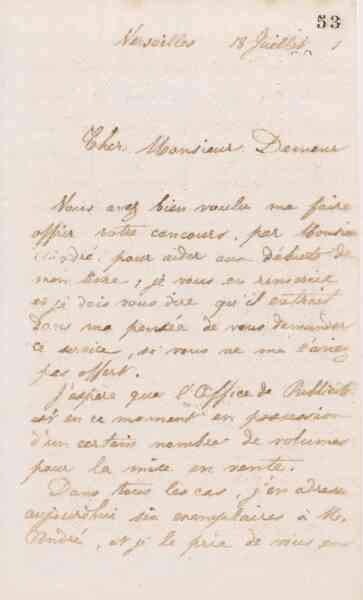 53
Versailles 18 Juillet
Cher Monsieur Demeur
Vous avez bien voulu me faire
offrir votre concours, par Monsieur
André pour aider aux débuts de
mon livre ; je vous en remercie
et je dois vous dire qu'il entrait
dans ma pensée de vous demander
ce service, si vous ne me l'aviez
pas offert.
J'espère que l'Office de Publicité
est en ce moment en possession
d'un certain nombre de volumes
pour la mise en vente.
Dans tous les cas, j'en adresse
aujourd'hui six exemplaires à M.
André, et je le prie de vous en